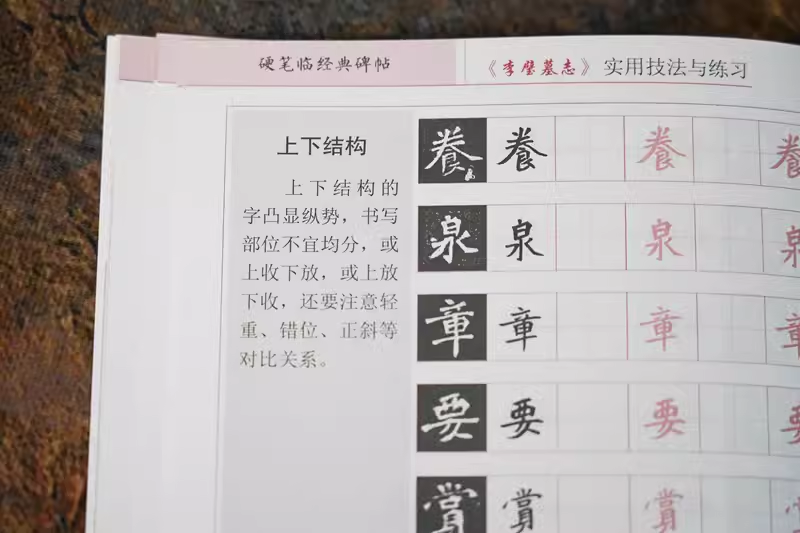 硬笔临经典碑帖
《李璧墓志》 实用技法与练习
上下结构
上下结构的
字凸显纵势，书写
部位不宜均分，或
上收下放，或上放
下收，还要注意轻
重、错位、正斜等
对比关系。
養 養 養 養
泉 泉 泉 泉
章 章 章 章
要 要 要 要
賞 賞 賞 賞